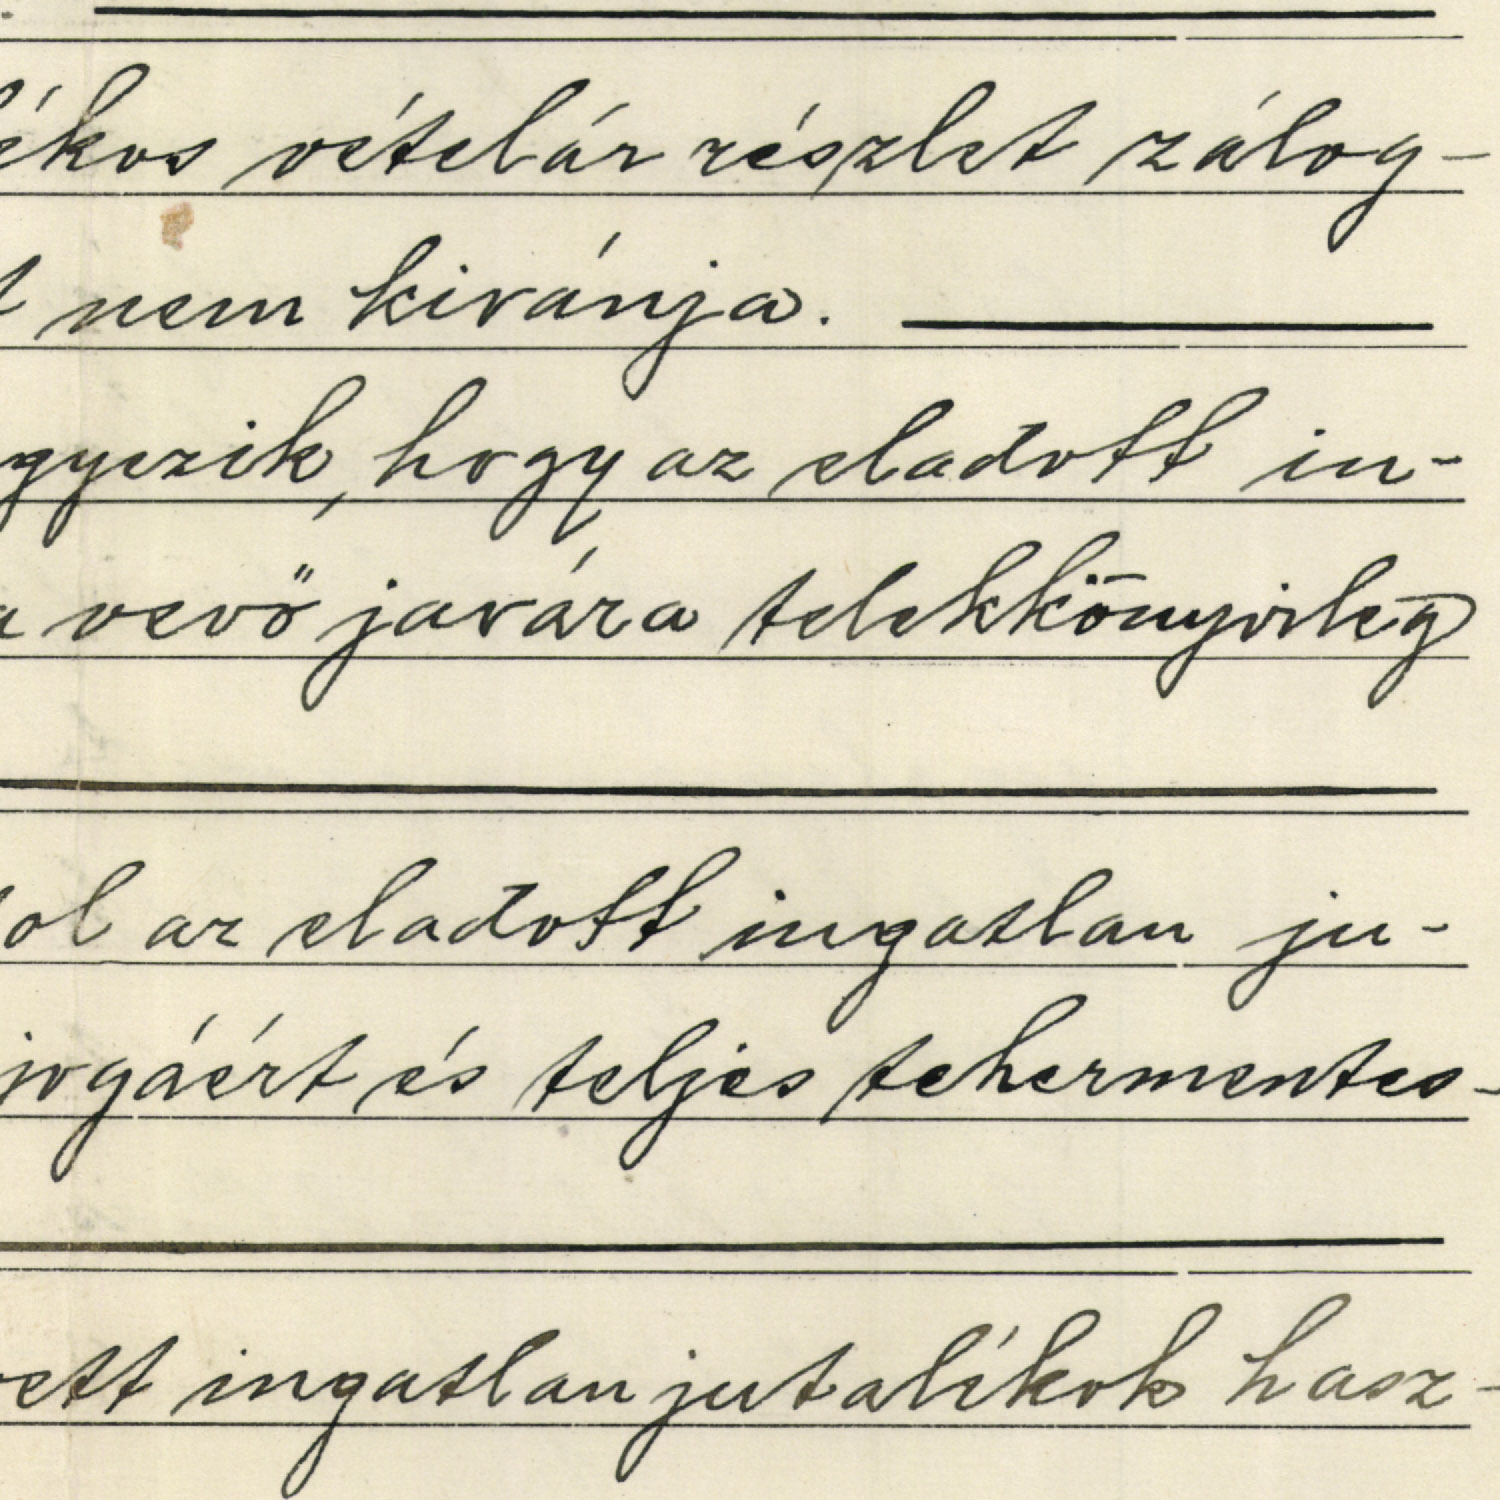 ékos vételár részlet zálog-
t nem kivánja.
gyezik, hogy az eladott in-
a vevő javára telekkönyvileg
ol az eladott ingatlan ju-
jogáért és teljes tehermentes-
vett ingatlan jutalékok hasz-